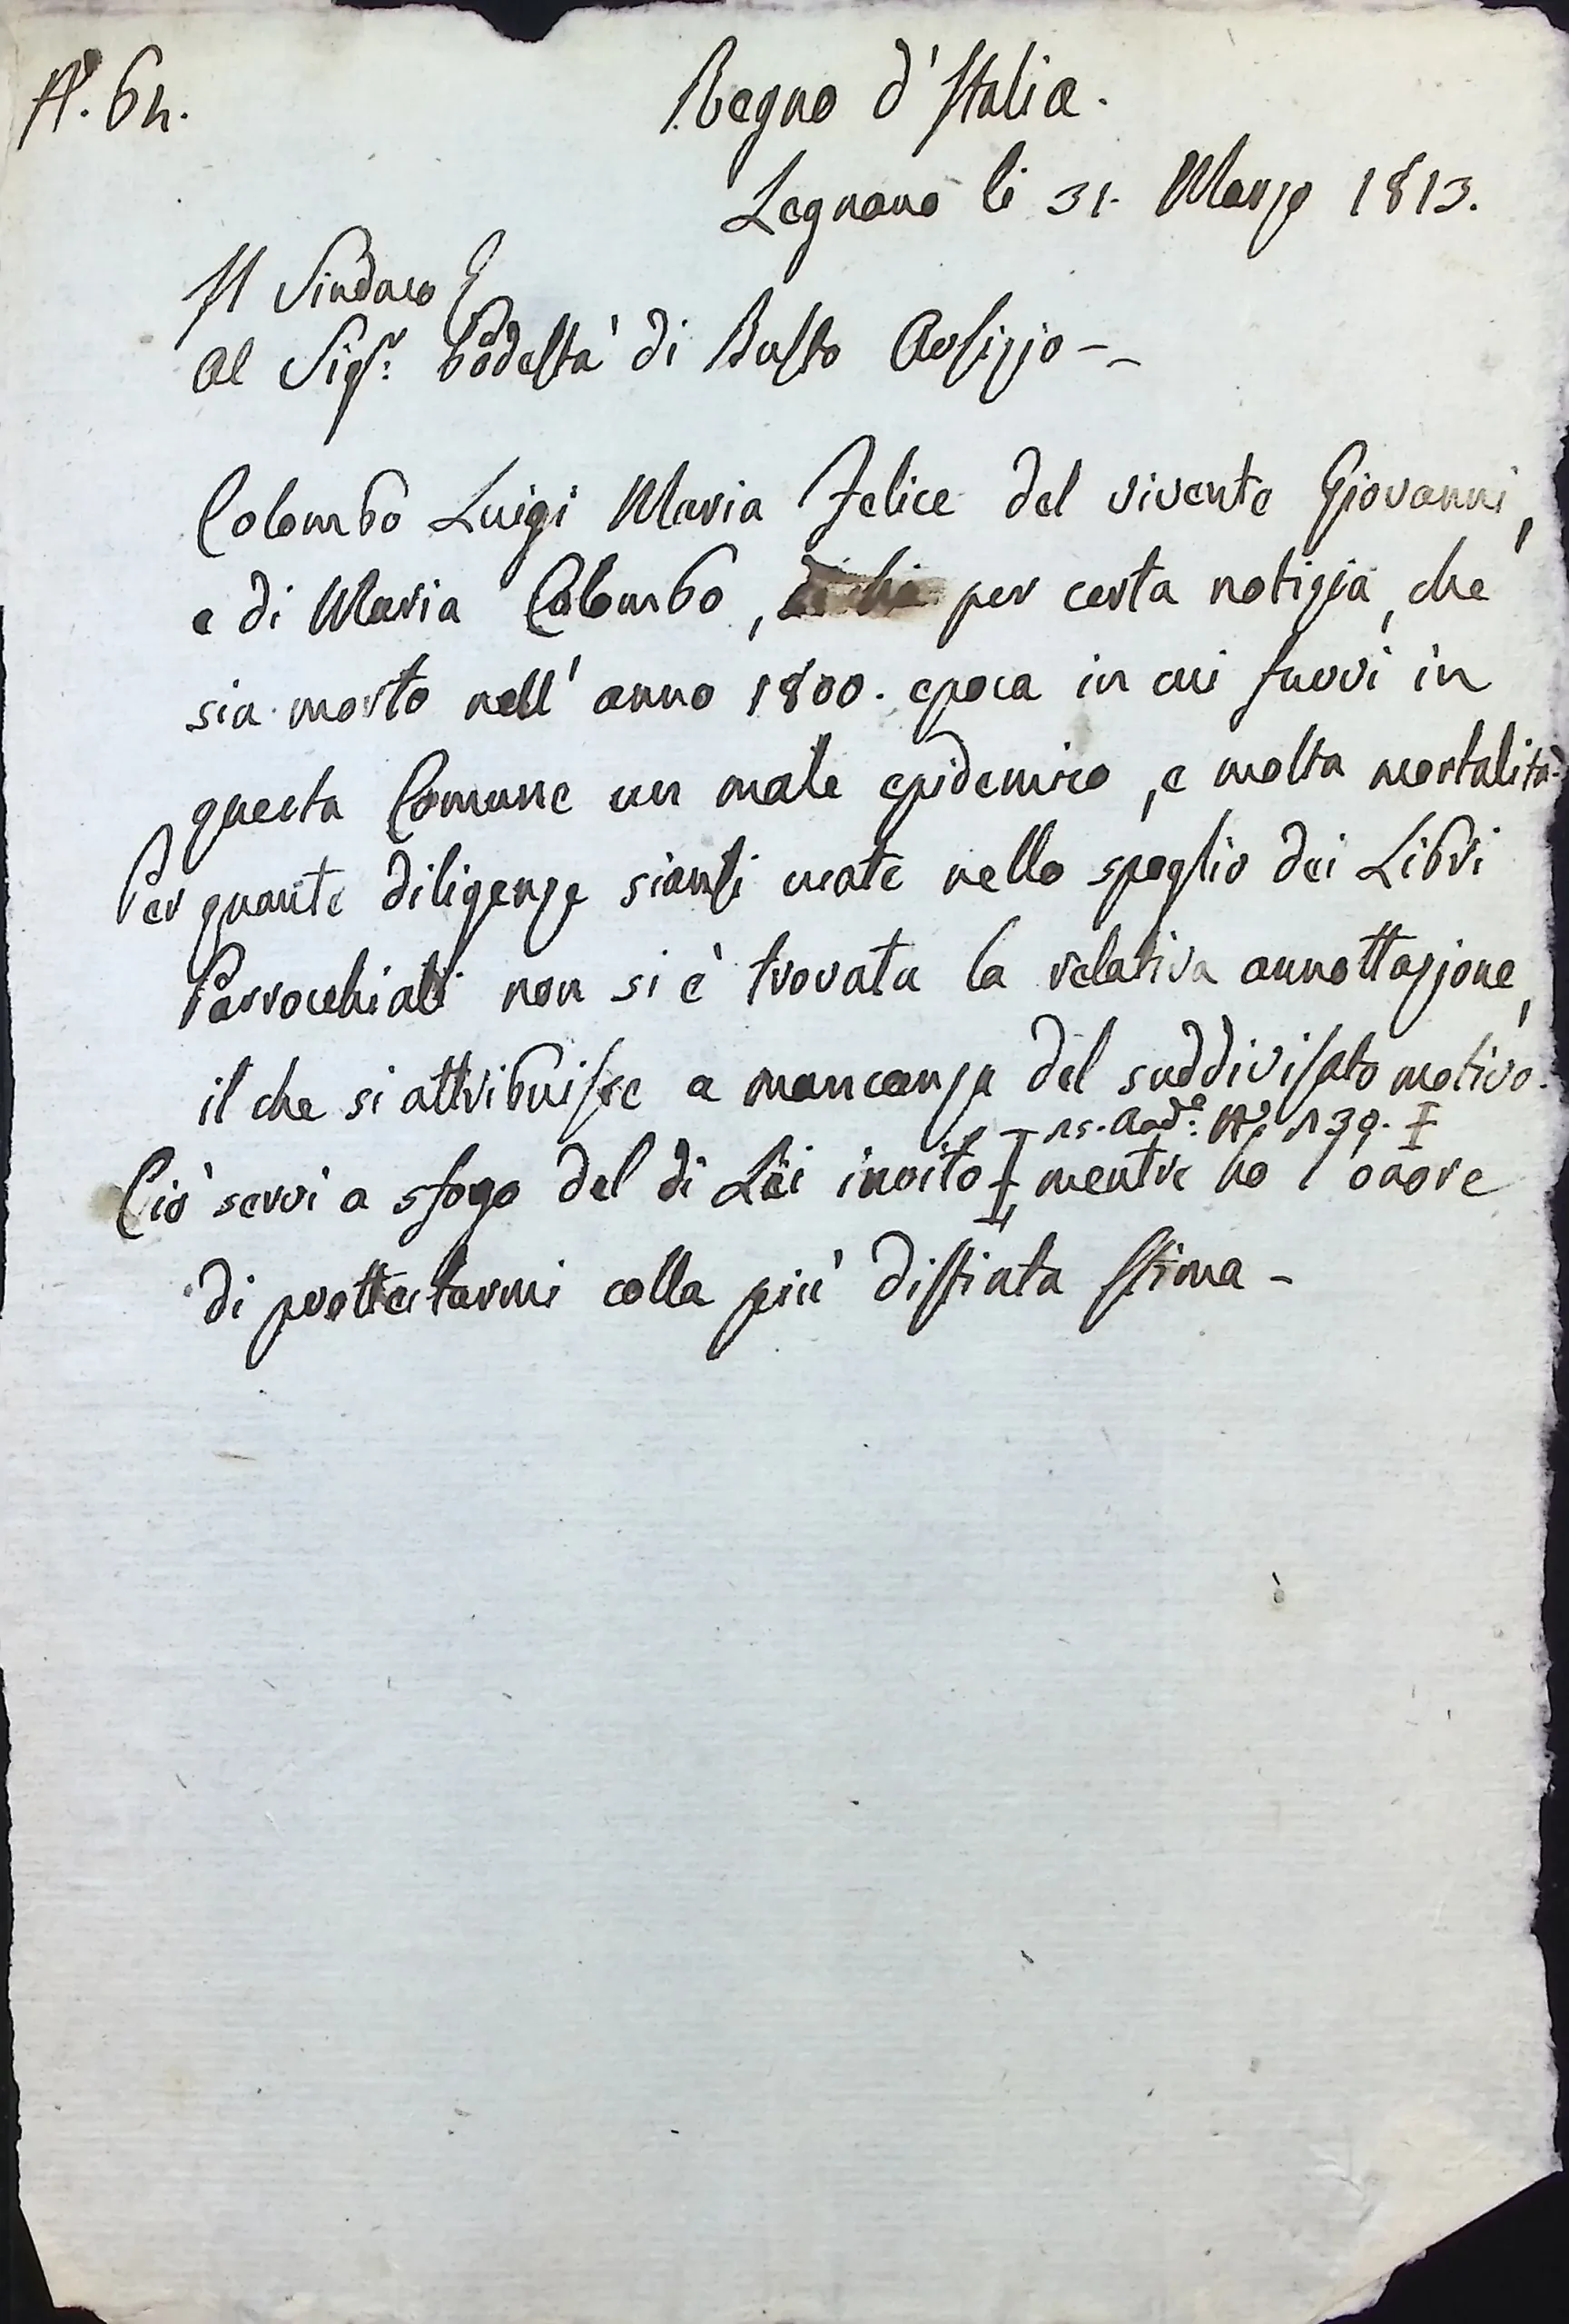 N.° 64.
Regno d'Italia.
Legnano li 31. Marzo 1813.
Il Sindaco
Al Sigr. Podestà di Busto Arsizio --
Colombo Luigi Maria Felice del vivente Giovanni,
e di Maria Colombo, si ha per certa notizia, che
sia morto nell' anno 1800. epoca in cui fuvvi in
questa Comune un male epidemico, e molta mortalità.
Per quante diligenze siansi usate nello spoglio dei Libri
Parrocchiali non si è trovata la relativa annottazione,
il che si attribuisce a mancanza del suddivisato motivo.
15. And.e N.° 139.
Ciò servi a sfogo del di Lei invito mentre ho l'onore
di prottestarmi colla più distinta stima -